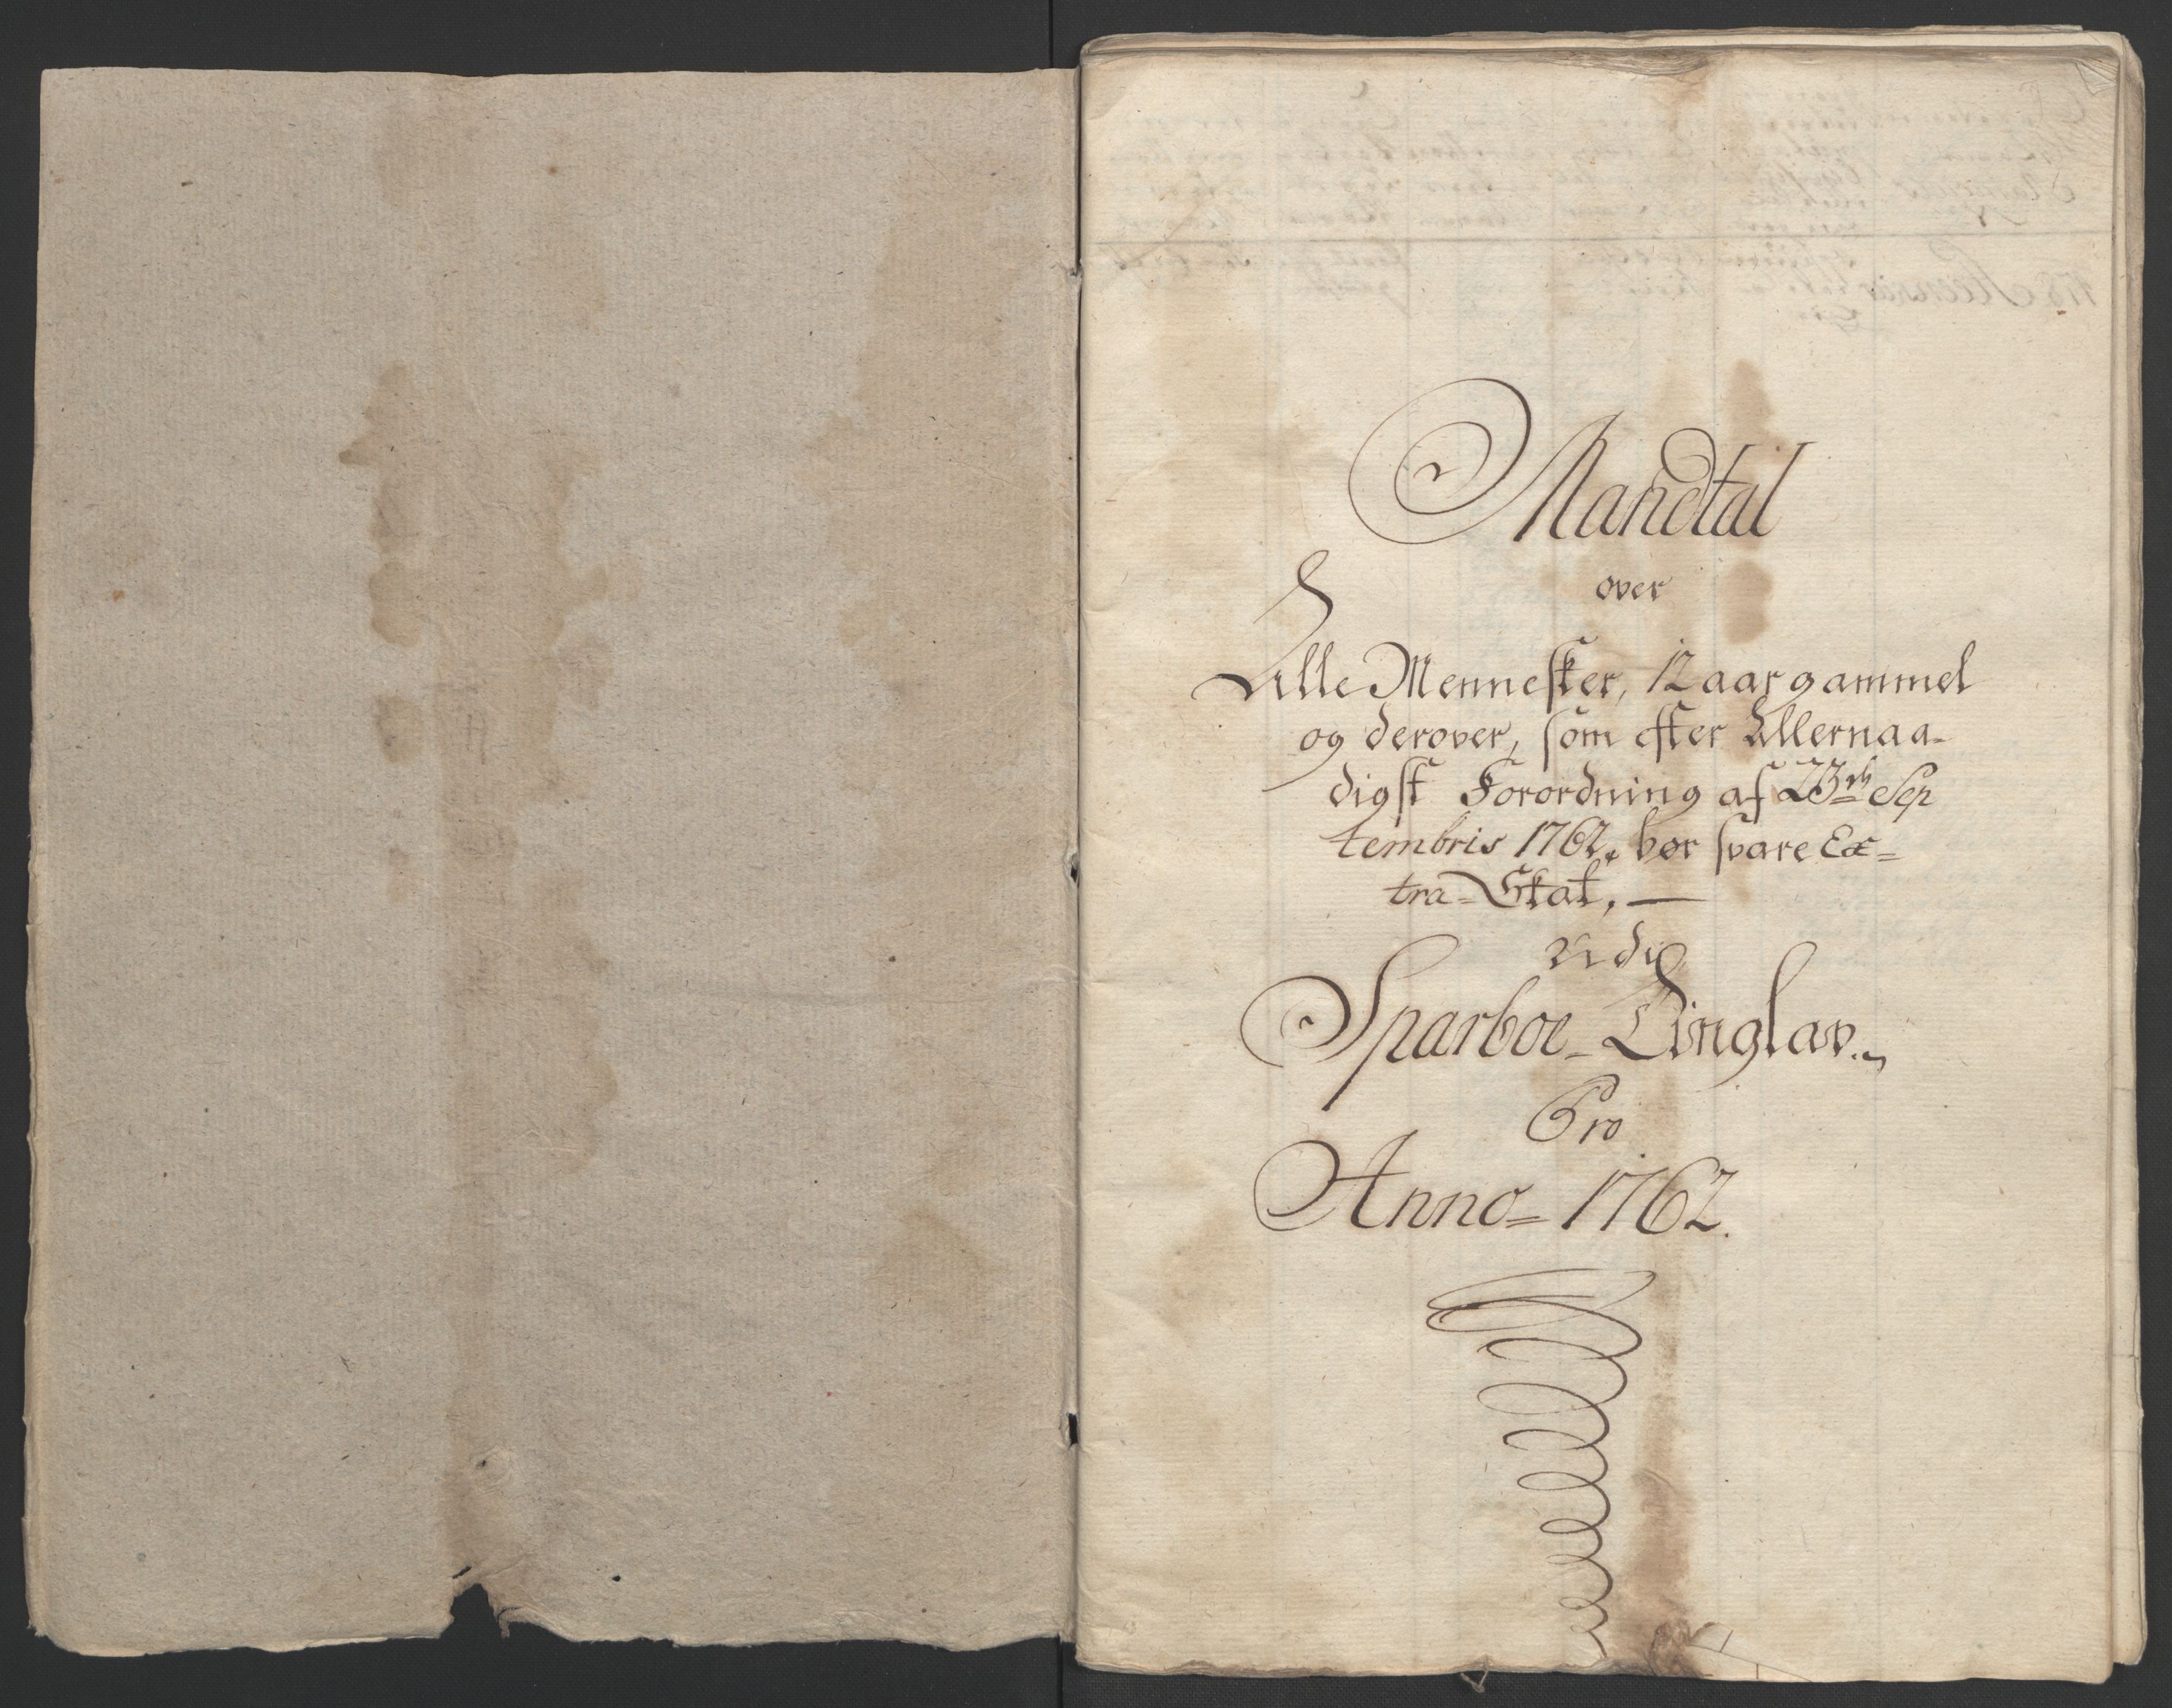 Mandtal
over
Alle Mennesker, 12 aar gammel
og derover, som efter Allernaa-
digst Forordning af 23de Sep
tembris 1762, bør svare Ex=
tra=Skat, —
udi
Sparboe - Tinglav.
Pro
Anno= 1762.